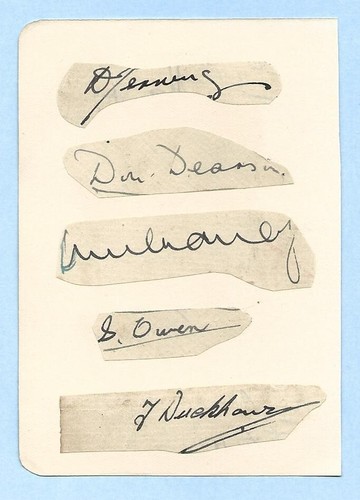 D Jenning
Don. Dearson.
Mulraney
S. Owen
T Duckhouse